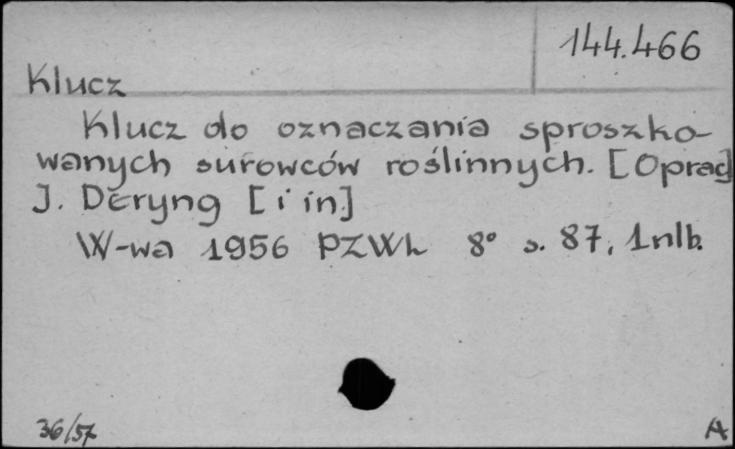 144.466
Klucz
Klucz do oznaczania sproszko-
wanych surowców roślinnych. [Oprac]
J. Deryng [i in]
W-wa 1956 PZWL 8° s. 87, 1nlb.
36/57
A